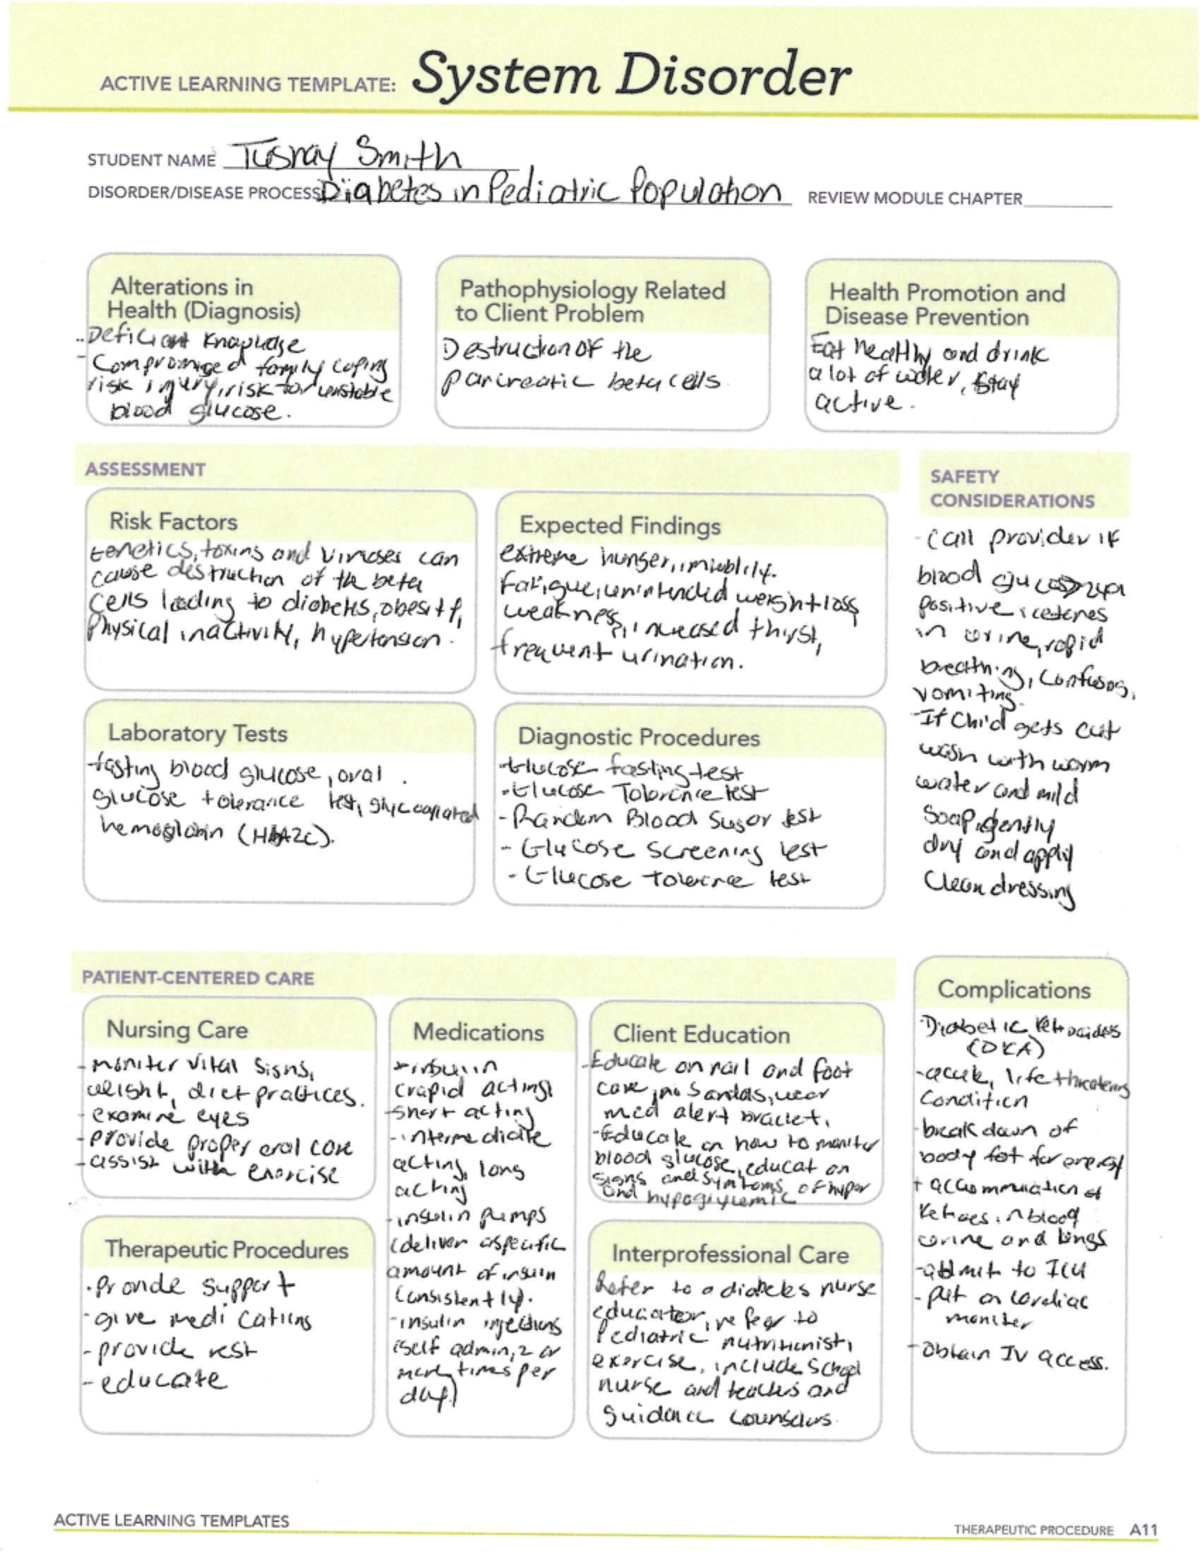 ACTIVE LEARNING TEMPLATE: System Disorder
STUDENT NAME Tusnay Smith
DISORDER/DISEASE PROCESS Diabetes in Pediatric Population REVIEW MODULE CHAPTER
Alterations in
Health (Diagnosis)
- Deficient Knowledge
- Compromised family coping
risk injury, risk for unstable
blood glucose.
Pathophysiology Related
to Client Problem
Destruction of the
pancreatic beta cells
Health Promotion and
Disease Prevention
Eat healthy and drink
a lot of water, Stay
active.
ASSESSMENT
Risk Factors
Genetics, toxins and viruses can
cause destruction of the beta
cells leading to diabetes, obesity,
Physical inactivity, hypertension.
Expected Findings
extreme hunger,
Fatigue, unintended weight loss
weakness, increased thirst,
frequent urination.
SAFETY
CONSIDERATIONS
- Call provider if
blood
positive
in urine, rapid
breathing, confusion,
vomiting.
- If child gets cut
wash with warm
water and mild
soap, gently
dry and apply
Clean dressing
Laboratory Tests
fasting blood glucose, oral
glucose tolerance test,
hemoglobin
Diagnostic Procedures
- Glucose fasting test
- Glucose Tolerance test
- Random Blood Sugar test
- Glucose screening test
- Glucose tolerance test
PATIENT-CENTERED CARE
Nursing Care
- moniter vital signs,
weight, diet practices.
- examine eyes
- provide proper oral care
- assist with exercise
Therapeutic Procedures
- Provide support
- give medications
- provide rest
- educate
Medications
(rapid acting)
- short acting
- intermediate
acting, long
acting
- insulin pumps
(deliver a specific
amount of insulin
consistently.
- insulin injections
(self admin, 2 or
more times per
day)
Client Education
- Educate on nail and foot
care, no sandals, wear
med alert bracelet.
- Educate on how to moniter
blood glucose, educat on
signs and symptoms of hyper
and hypoglycemic
Interprofessional Care
Refer to a diabetes nurse
educator, refer to
Pediatric nutritionist,
exercise, include School
nurse and teachers and
guidance counselors.
Complications
- Diabetic Ketoacidosis
(DKA)
- acute, life threatening
condition
- breakdown of
body fat for energy
+ of
in blood
urine and lungs
- admit to ICU
- put on cardiac
moniter
- Obtain IV access.
ACTIVE LEARNING TEMPLATES
THERAPEUTIC PROCEDURE A11